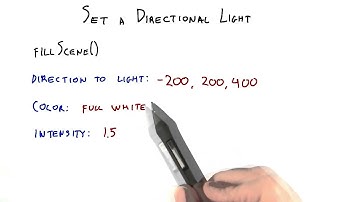 SET A DIRECTIONAL LIGHT
FILLSCENE()
DIRECTION TO LIGHT: -200, 200, 400
COLOR: FULL WHITE
INTENSITY: 1.5